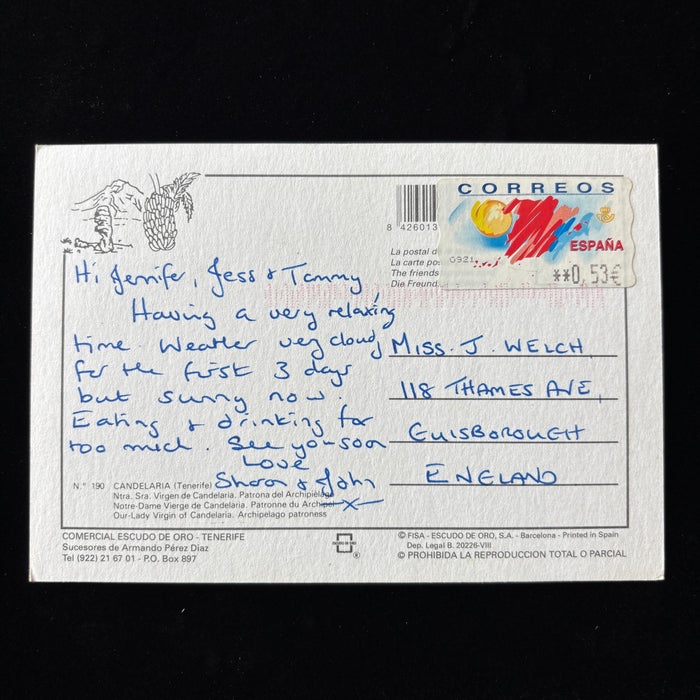 8 426013
CORREOS
ESPAÑA
0921
**0,53€
La postal d
La carte po
The friends
Die Freund
Hi Jennifer, Jess & Tammy,
Having a very relaxing
time. Weather very cloudy
for the first 3 days
but sunny now.
Eating & drinking far
too much. See you soon
Love
Sharon & John
X
MISS. J. WELCH
118 THAMES AVE,
GUISBOROUGH
ENGLAND
N.° 190 CANDELARIA (Tenerife)
Ntra. Sra. Virgen de Candelaria. Patrona del Archipiélago
Notre-Dame Vierge de Candelaria. Patronne du Archipel
Our-Lady Virgin of Candelaria. Archipelago patroness
COMERCIAL ESCUDO DE ORO - TENERIFE
Sucesores de Armando Pérez Diaz
Tel (922) 21 67 01 - P.O. Box 897
ESCUDO DE ORO
®
© FISA - ESCUDO DE ORO, S.A. - Barcelona - Printed in Spain
Dep. Legal B. 20226-VIII
© PROHIBIDA LA REPRODUCCION TOTAL O PARCIAL